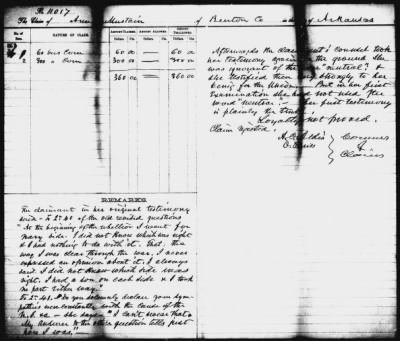 No 11017
The Claim of Anne Mustain of Benton Co Arkansas
No. of Item.
NATURE OF CLAIM.
AMOUNT CLAIMED.
AMOUNT ALLOWED.
AMOUNT DISALLOWED.
Dolls. Cts.
Dolls. Cts.
Dolls. Cts.
1 60 bus Corn 60 00 — 60 00
2 300 " Corn 300 00 — 300 00
360 00 — 360 00
REMARKS.
The claimant in her original testimony
said - to Q. 40 of the old revised questions
"At the beginning of the rebellion I went for
nary side. I did not know which was right
& I had nothing to do with it. That the
way I was clear through the war. I never
expressed an opinion about it. I always
said I did not know which side was
right. I had a son on each side & I took
no part either way."
to Q. 41. "Do you solemnly declare your sym-
pathies were constantly with the cause of the
U.S. &c - she says - "I can't swear that -
My answer to the other question tells just
how I was" -
Afterwards the claimant's counsel took
her testimony again on the ground she
was ignorant of the word "neutral" &
she testified then very strongly to her
being for the Union - But in her first
examination she did not used the
word neutral - her first testimony
is plainly the truth.
Loyalty not proved.
Claim rejected.
A. O. Aldis
Commrs
of
Claims